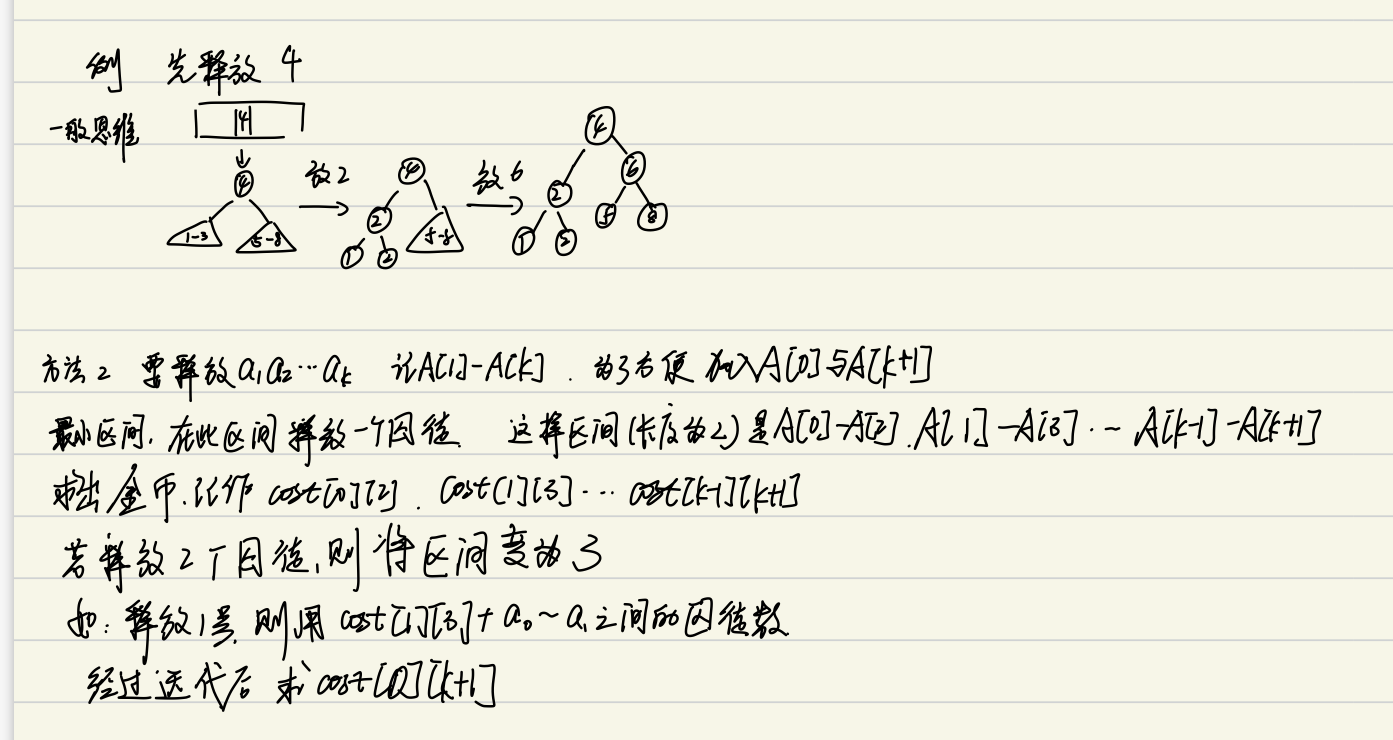 例 先释放 4
一般思维
4
4
1-3 5-8
放2
4
2
1 2
5-8
放6
4
2 6
1 5 8
方法2 要释放a₁a₂…aₖ 记A[1]-A[k]. 为了方便 加入A[0]与A[k+1]
最小区间, 在此区间释放一个囚徒. 这样区间(长度为2)是A[0]-A[2]. A[1]-A[3]. … A[k-1]-A[k+1]
求出金币, 记作 cost[0][2]. cost[1][3]… cost[k-1][k+1]
若释放2个囚徒, 则将区间变为3
如: 释放1号, 则用 cost[1][3]+a₀~a₁之间的囚徒数
经过迭代后 求 cost[0][k+1]